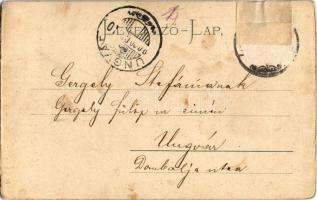 LEVELEZŐ-LAP.
UNGVÁR
Gergely Stefániának
Gergely Fülöp úr címén
Ungvár